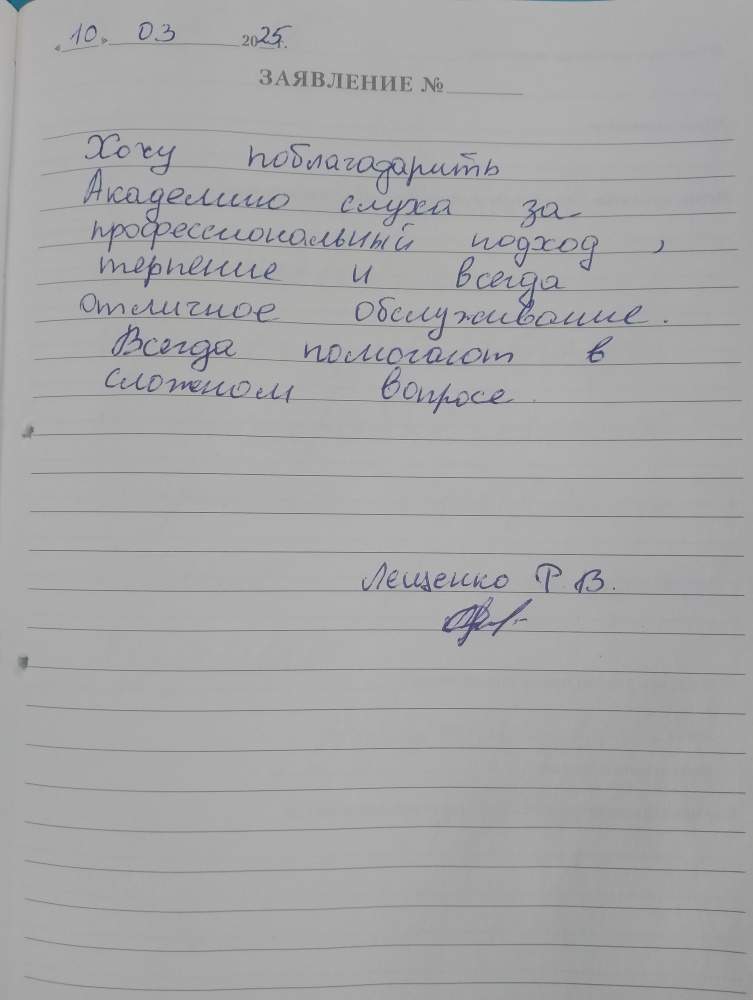 «10» 03 2025г.
ЗАЯВЛЕНИЕ №
Хочу поблагадарить
Академию слуха за
профессиональный подход,
терпение и всегда
отличное обслуживание.
Всегда помогают в
сложном вопросе.
Лещенко Р.В.